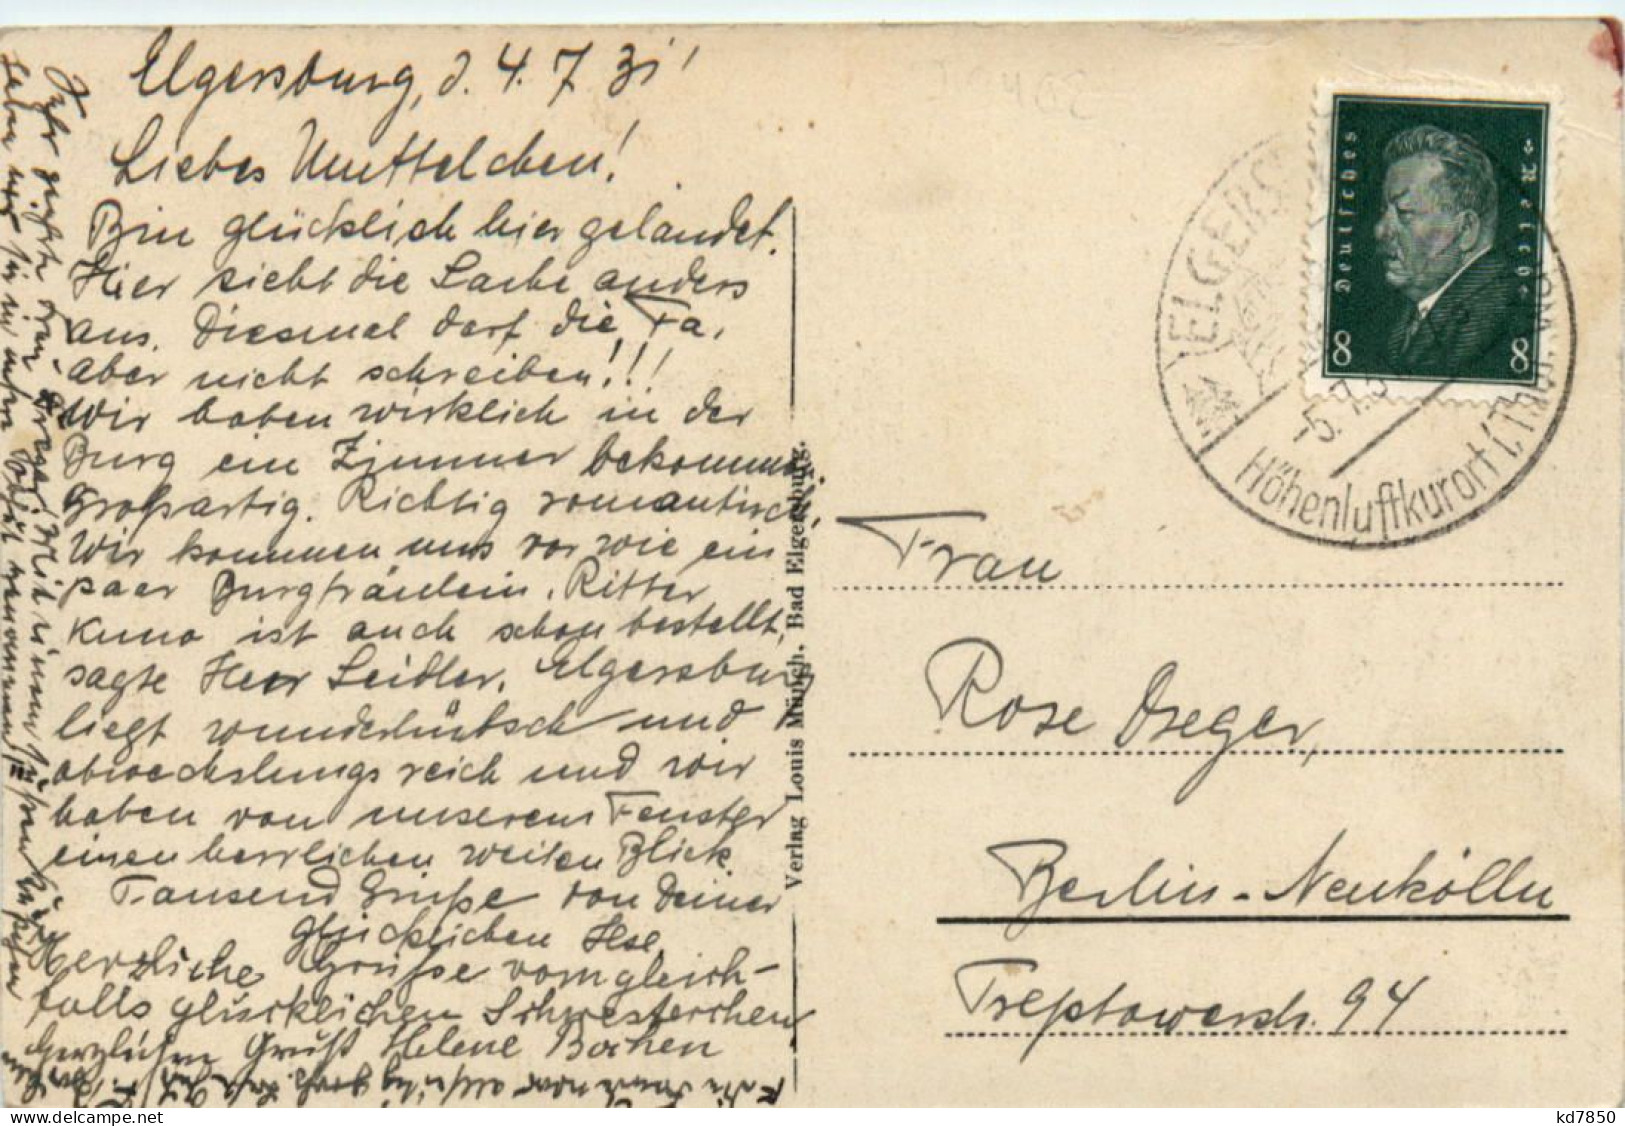 Elgersburg, d. 4. 7. 31
Liebes Muttelchen!
Bin glücklich hier gelandet.
Hier sieht die Sache anders
aus. Diesmal darf die Fa.
aber nicht schreiben!!!
Wir haben wirklich in der
Burg ein Zimmer bekommen
Großartig. Richtig romantisch,
Wir kommen uns vor wie ein
paar Burgfräulein. Ritter
Kuno ist auch schon bestellt,
sagte Herr Seidler. Elgersburg
liegt wunderhübsch und
abwechslungsreich und wir
haben von unserem Fenster
einen herrlichen weiten Blick.
Tausend Grüße von Deiner
glücklichen Ilse.
Herzliche Grüße vom gleich-
falls glücklichen Schwesterchen
Herzlichen Gruß Helene Bochen
Sehr geehrte Frau Dreger! Mit
Verlag Louis Münch. Bad Elgersburg.
Deutsches Reich
8 8
ELGERSBURG
-5. 7. 31
Höhenluftkurort i. Thür.
Frau
Rose Dreger,
Berlin-Neukölln
Treptowerstr. 94
kd7850